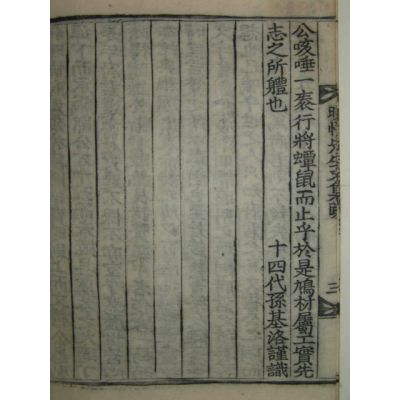 公咳唾一袠行將蟫鼠而止乎於是鳩材屬工實先
志之所軆也　十四代孫基洛謹識
先生文集
三